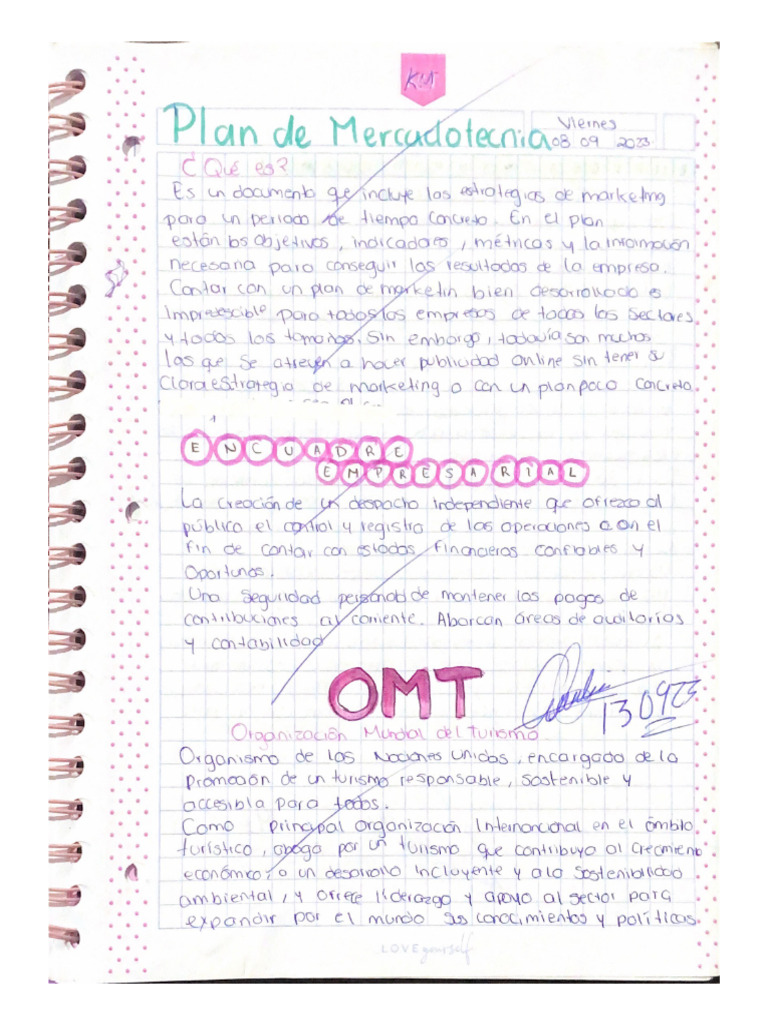 KM
Plan de Mercadotecnia
Viernes
08 09 2023
¿Qué es?
Es un documento que incluye las estrategias de marketing
para un periodo de tiempo concreto. En el plan
están los objetivos, indicadores, métricas y la información
necesaria para conseguir los resultados de la empresa.
Contar con un plan de marketin bien desarrollado es
imprescible para todos los empresas de todos los sectores
y todos los tamaños. Sin embargo, todavía son muchos
las que se atreven a hacer publicidad online sin tener su
clara estrategia de marketing o con un plan poco concreto.
ENCUADRE
EMPRESARIAL
La creación de un despacho independiente que ofrezca al
público el control y registro de las operaciones con el
fin de contar con estados financieros confiables y
oportunos.
Una seguridad personal de mantener los pagos de
contribuciones al corriente. Aborcan áreas de auditorias
y contabilidad
OMT
130923
Organización Mundial del turismo
Organismo de las Naciones Unidas, encargado de la
promoción de un turismo responsable, sostenible y
accesibla para todos.
Como principal organización Internancional en el ámbito
turístico, aboga por un turismo que contribuya al crecimiento
económico, a un desarrollo incluyente y a la sostenibilidad
ambiental, y ofrece liderazgo y apoyo al sector para
expandir por el mundo sus conocimientos y políticas.
LOVE yourself